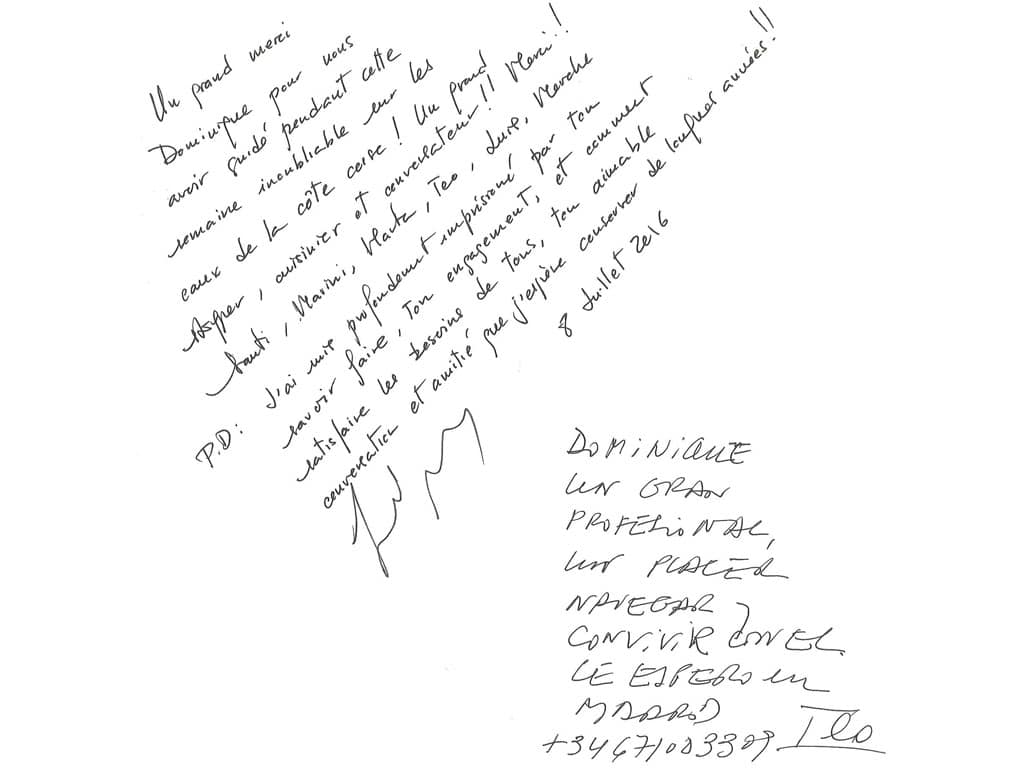 Un grand merci
Dominique pour nous
avoir guidé pendant cette
semaine inoubliable sur les
eaux de la côte corse ! Un grand
skipper, cuisinier et conversateur !! Merci !!
Santi, Marini, Marta, Teo, Luis, Merche
P.D: J'ai suis profondement imprisioné par ton
savoir faire, ton engagement, et comment
satisfaire les besoins de tous, ton aimable
conversation et amitié que j'espère conserver de longues années !!
8 Juillet 2016
DOMINIQUE
UN GRAN
PROFESIONAL,
UN PLACER
NAVEGAR Y
CONVIVIR CON EL.
LE ESPERO en
MADRID
+34671083309 Teo